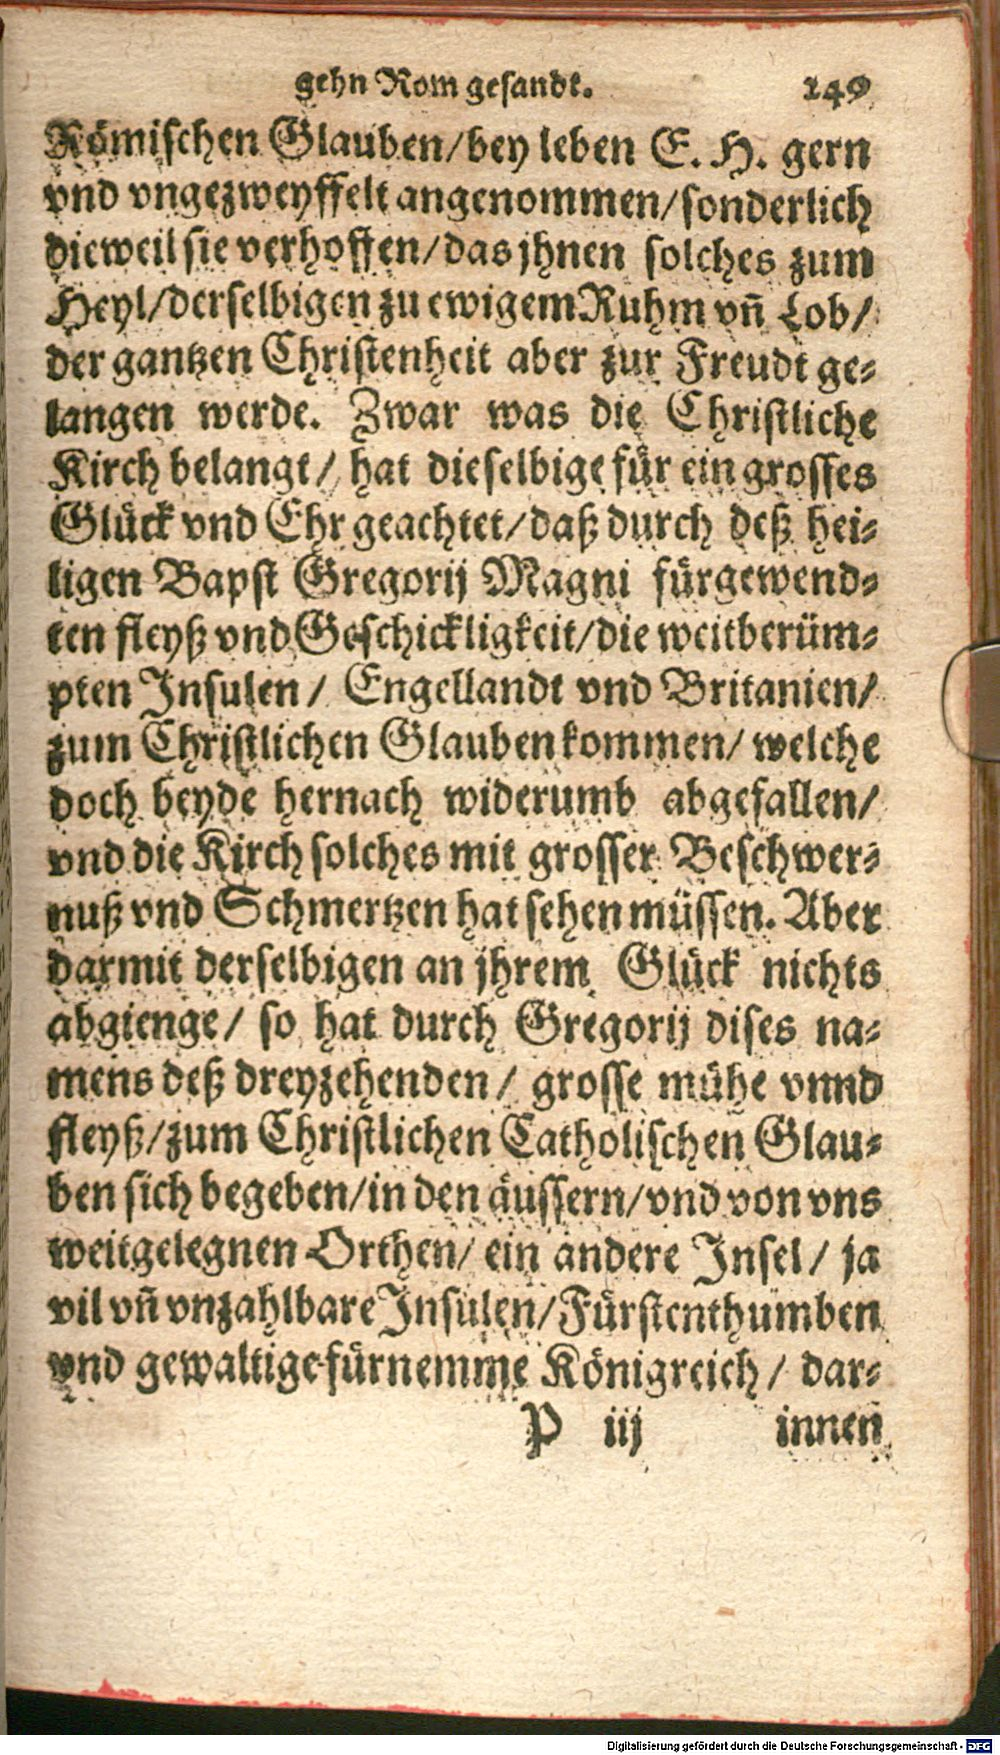 gehn Rom gesandt. 249
Römischen Glauben/bey leben E. H. gern
vnd vngezweyffelt angenommen/sonderlich
dieweil sie verhoffen/das jhnen solches zum
Heyl/derselbigen zu ewigem Ruhm vñ Lob/
der gantzen Christenheit aber zur Freudt ge-
langen werde. Zwar was die Christliche
Kirch belangt/ hat dieselbige für ein grosses
Glück vnd Ehr geachtet/daß durch deß hei-
ligen Bapst Gregorij Magni fürgewend-
ten fleyß vnd Geschickligkeit/die weitberüm-
pten Insulen/ Engellandt vnd Britanien/
zum Christlichen Glauben kommen/ welche
doch beyde hernach widerumb abgefallen/
vnd die Kirch solches mit grosser Beschwer-
nuß vnd Schmertzen hat sehen müssen. Aber
darmit derselbigen an jhrem Glück nichts
abgienge/ so hat durch Gregorij dises na-
mens deß dreyzehenden/ grosse mühe vnnd
fleyß/zum Christlichen Catholischen Glau-
ben sich begeben/in den äussern/vnd von vns
weitgelegnen Orthen/ ein andere Insel/ ja
vil vñ vnzahlbare Insulen/Fürstenthumben
vnd gewaltige fürnemme Königreich/ dar-
P iij innen
Digitalisierung gefördert durch die Deutsche Forschungsgemeinschaft - DFG